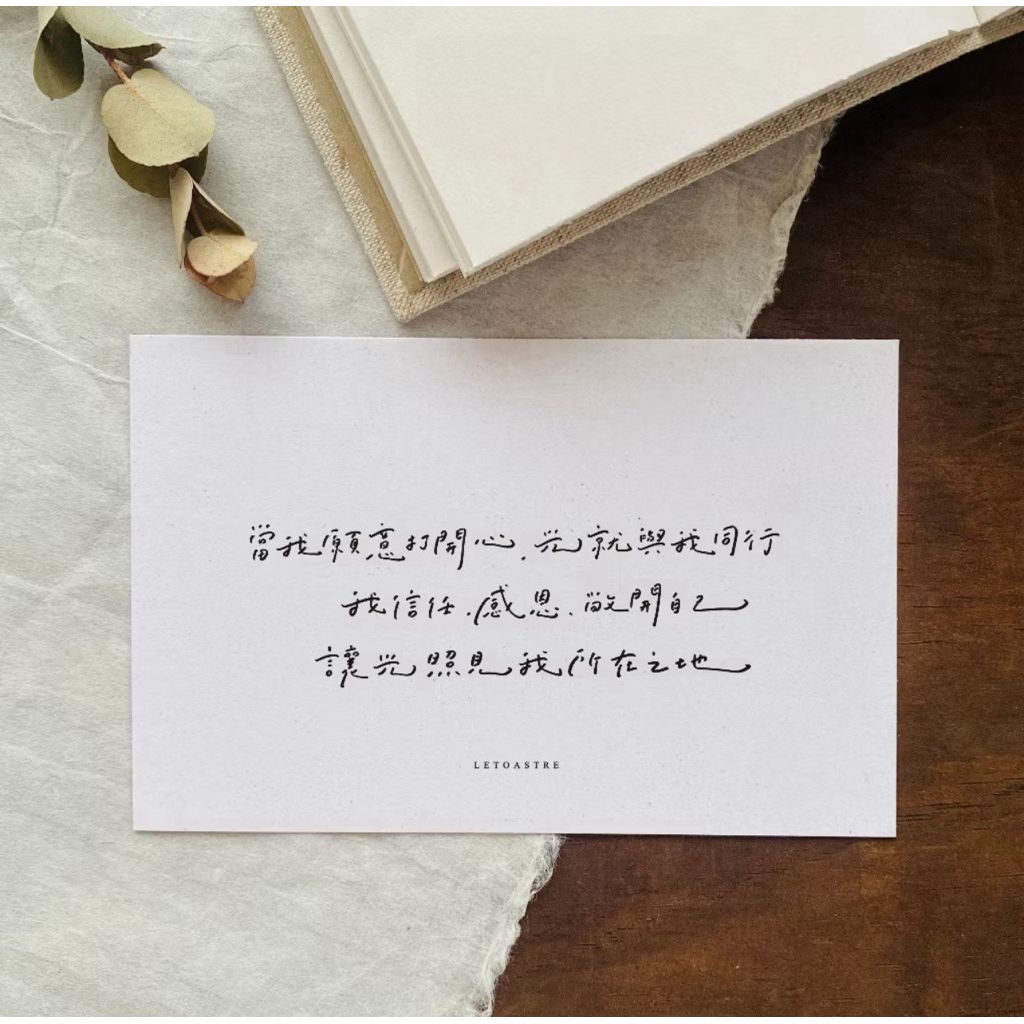 當我願意打開心，光就與我同行
我信任、感恩、敞開自己
讓光照見我所在之地
LETOASTRE